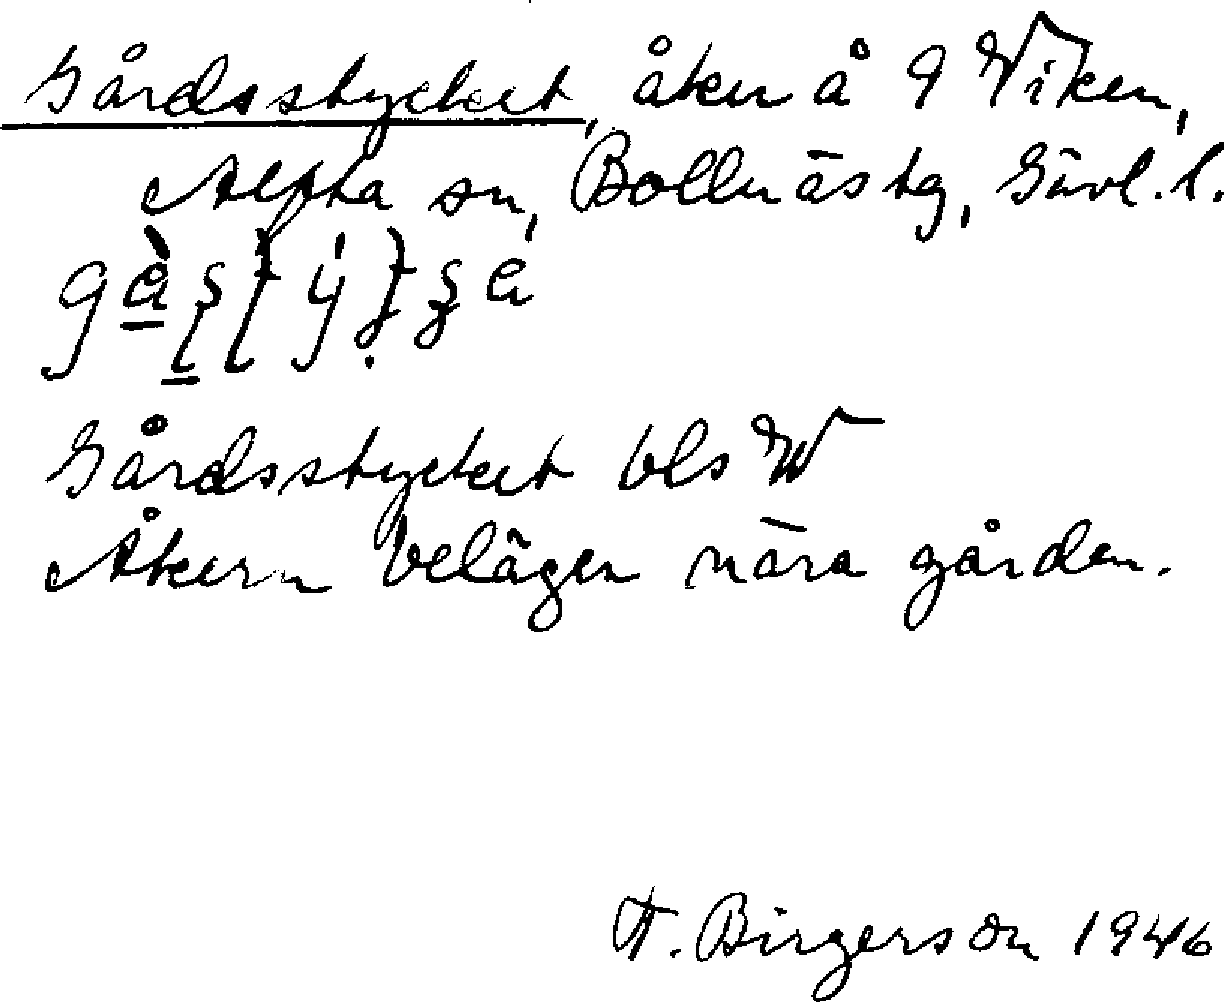 Gårdsstycket, åker å 9 Viken,
Alfta sn, Bollnäs tg, Gävl. l.
Gårdsstycket bls W
Åkern belägen nära gården.
F. Birgerson 1946